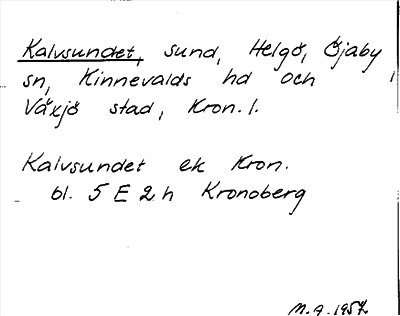 Kalvsundet, sund, Helgö, Öjaby
sn, Kinnevalds hd och
Växjö stad, Kron. l.
Kalvsundet ek Kron.
bl. 5 E 2 h Kronoberg
1957